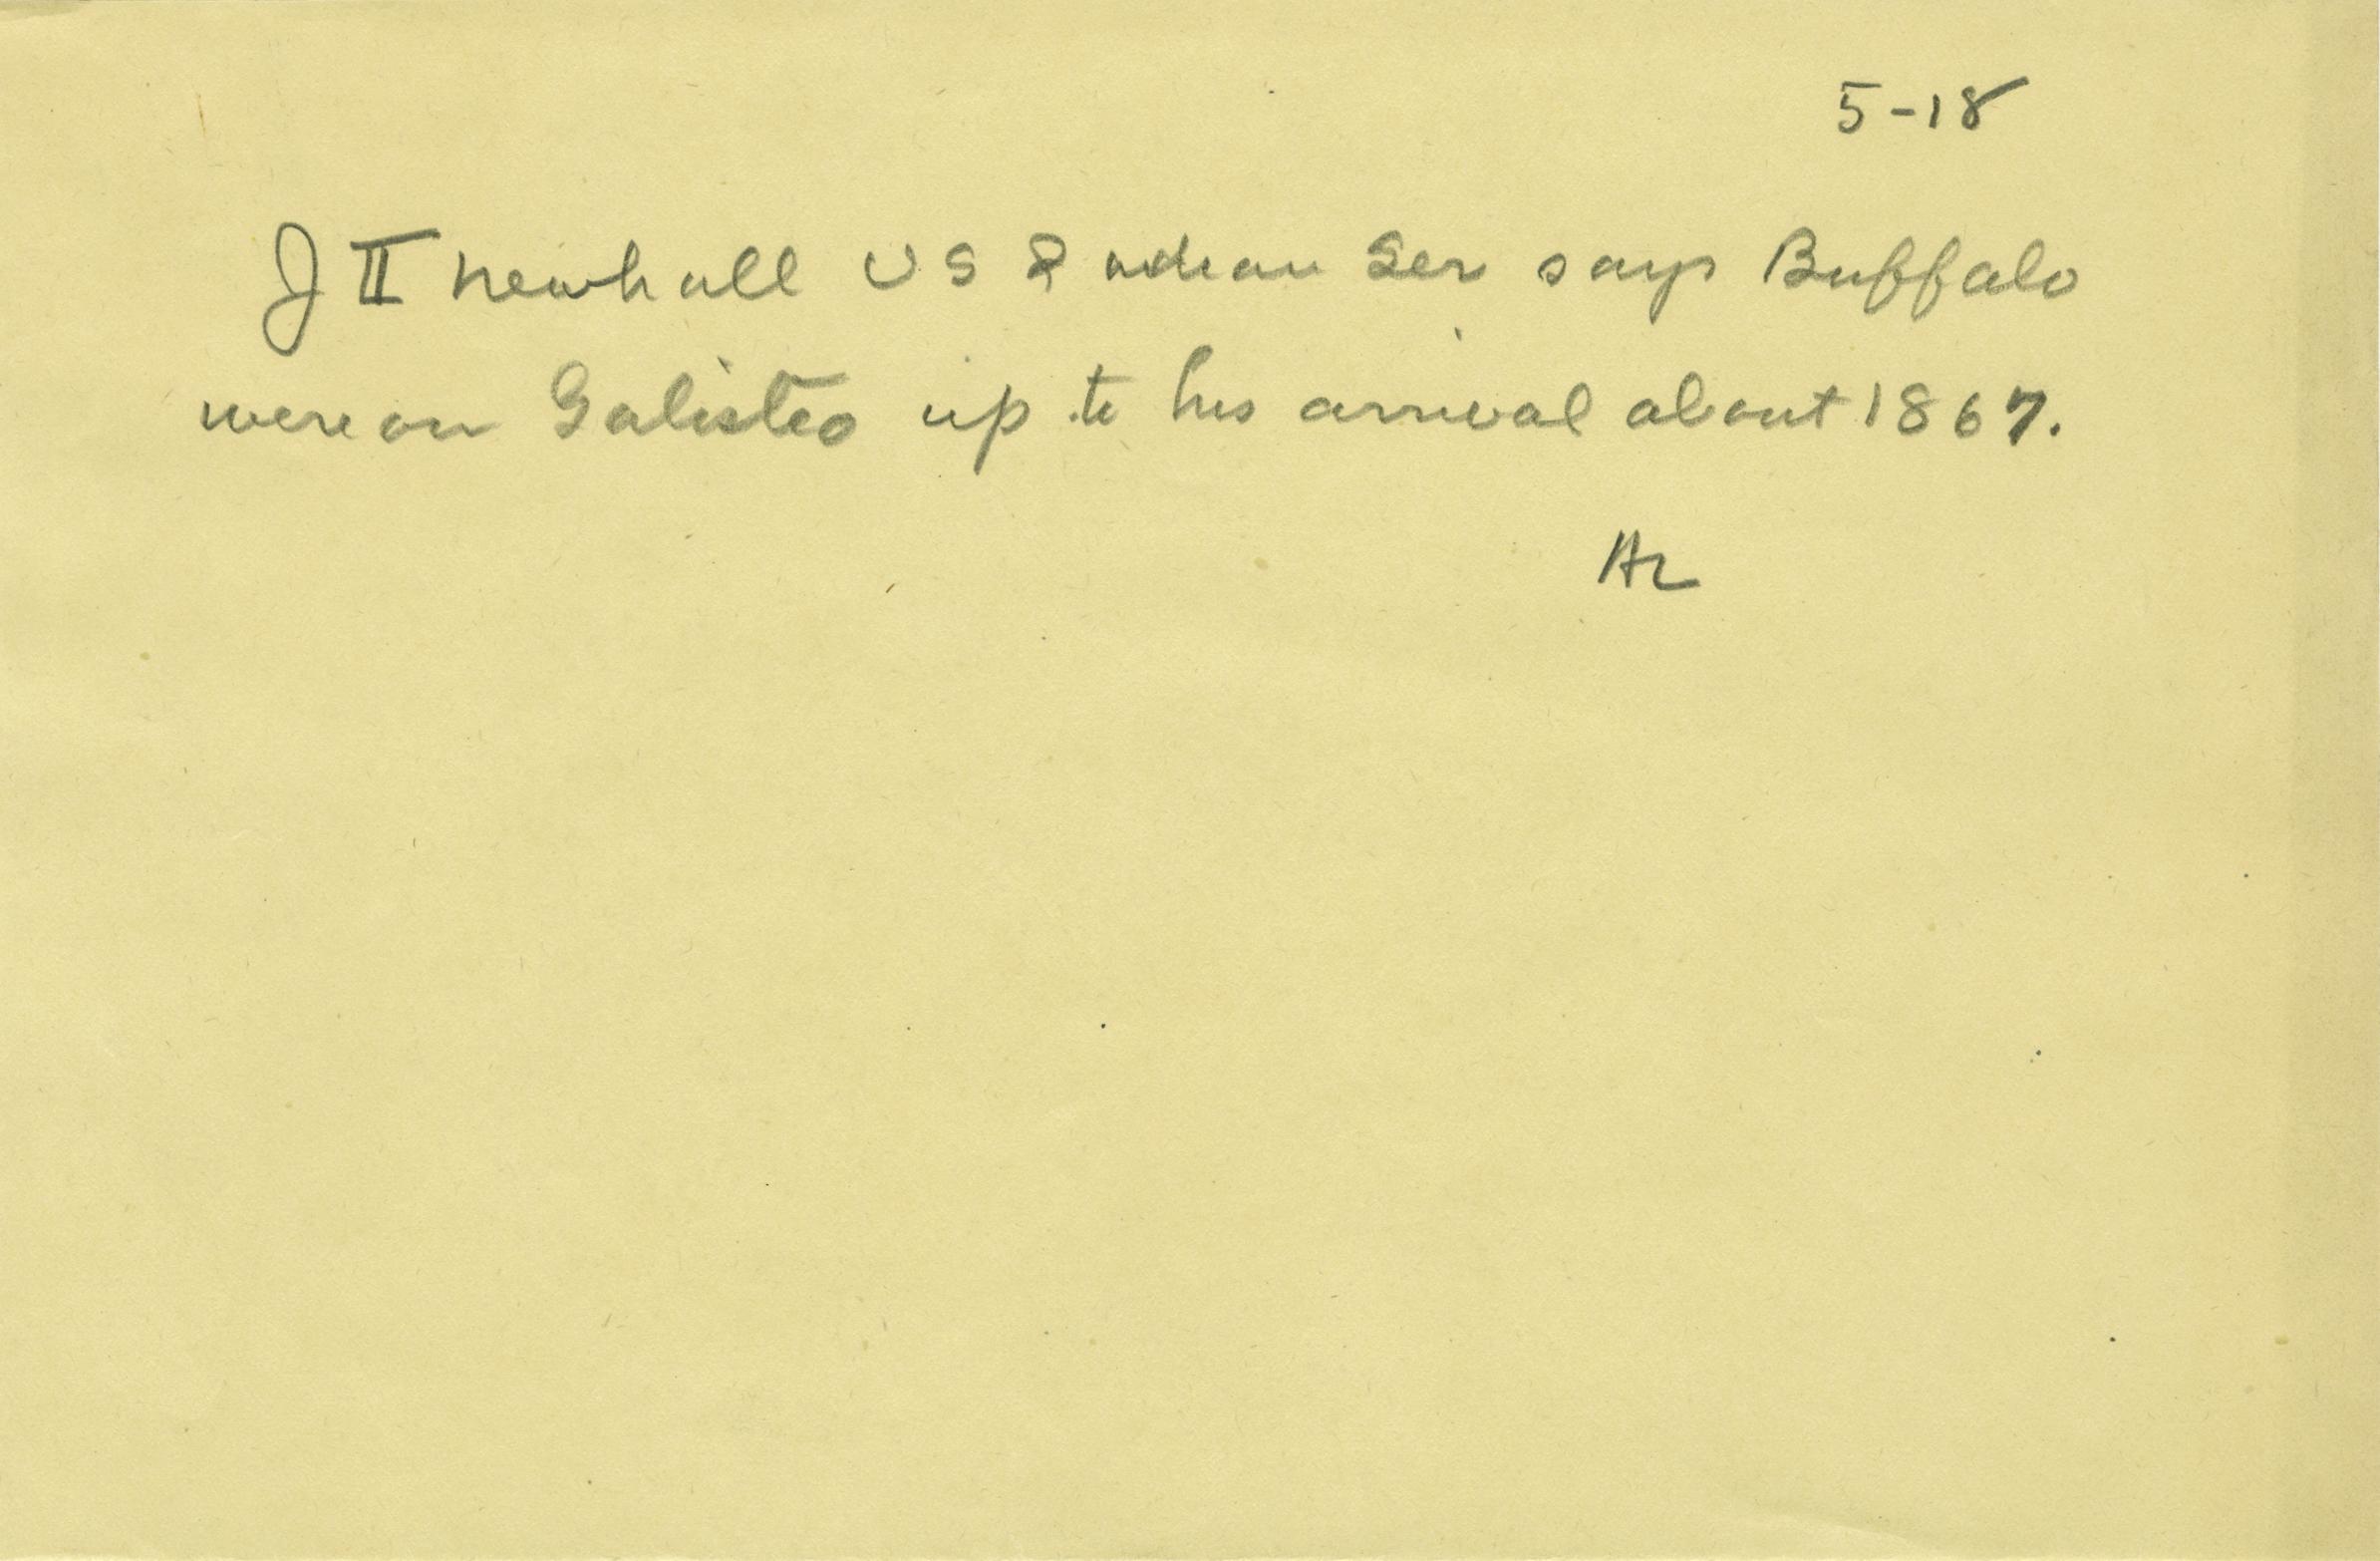 5-18
J H Newhall US Indian Ser says Buffalo
were on Galisteo up to his arrival about 1867.
AL